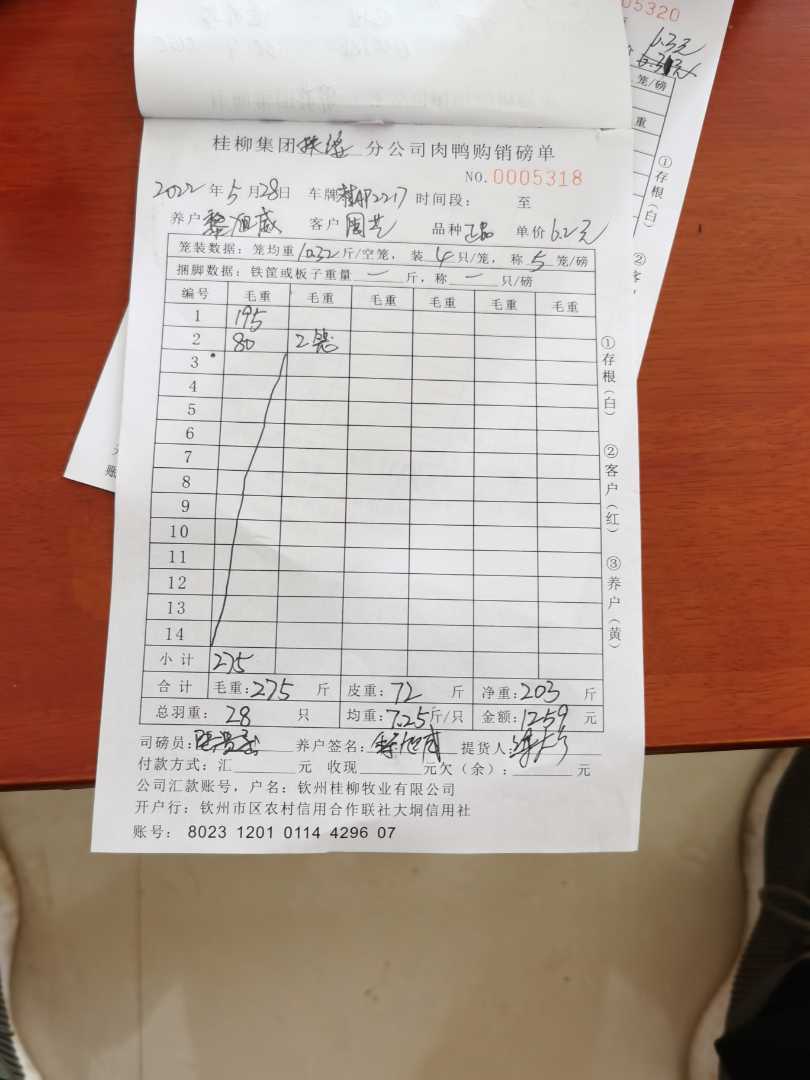 05320
6.3元
笼/磅
重
①存根（白）
②客
桂柳集团 分公司肉鸭购销磅单
NO.0005318
2022年5月28日 车牌桂AP2217 时间段： 至
养户黎旭威 客户周艺 品种正品 单价6.2元
笼装数据：笼均重10.32斤/空笼，装4只/笼，称5笼/磅
捆脚数据：铁筐或板子重量一斤，称一只/磅
编号 毛重 毛重 毛重 毛重 毛重 毛重
1 195
2 80 2笼
3
4
5
6
7
8
9
10
11
12
13
14
小计 275
合计 毛重：275斤 皮重：72斤 净重：203斤
总羽重：28只 均重：7.25斤/只 金额：1259元
司磅员： 养户签名： 提货人：
付款方式：汇 元 收现 元欠（余）： 元
公司汇款账号，户名：钦州桂柳牧业有限公司
开户行：钦州市区农村信用合作联社大垌信用社
账号：8023 1201 0114 4296 07
①存根（白）
②客户（红）
③养户（黄）